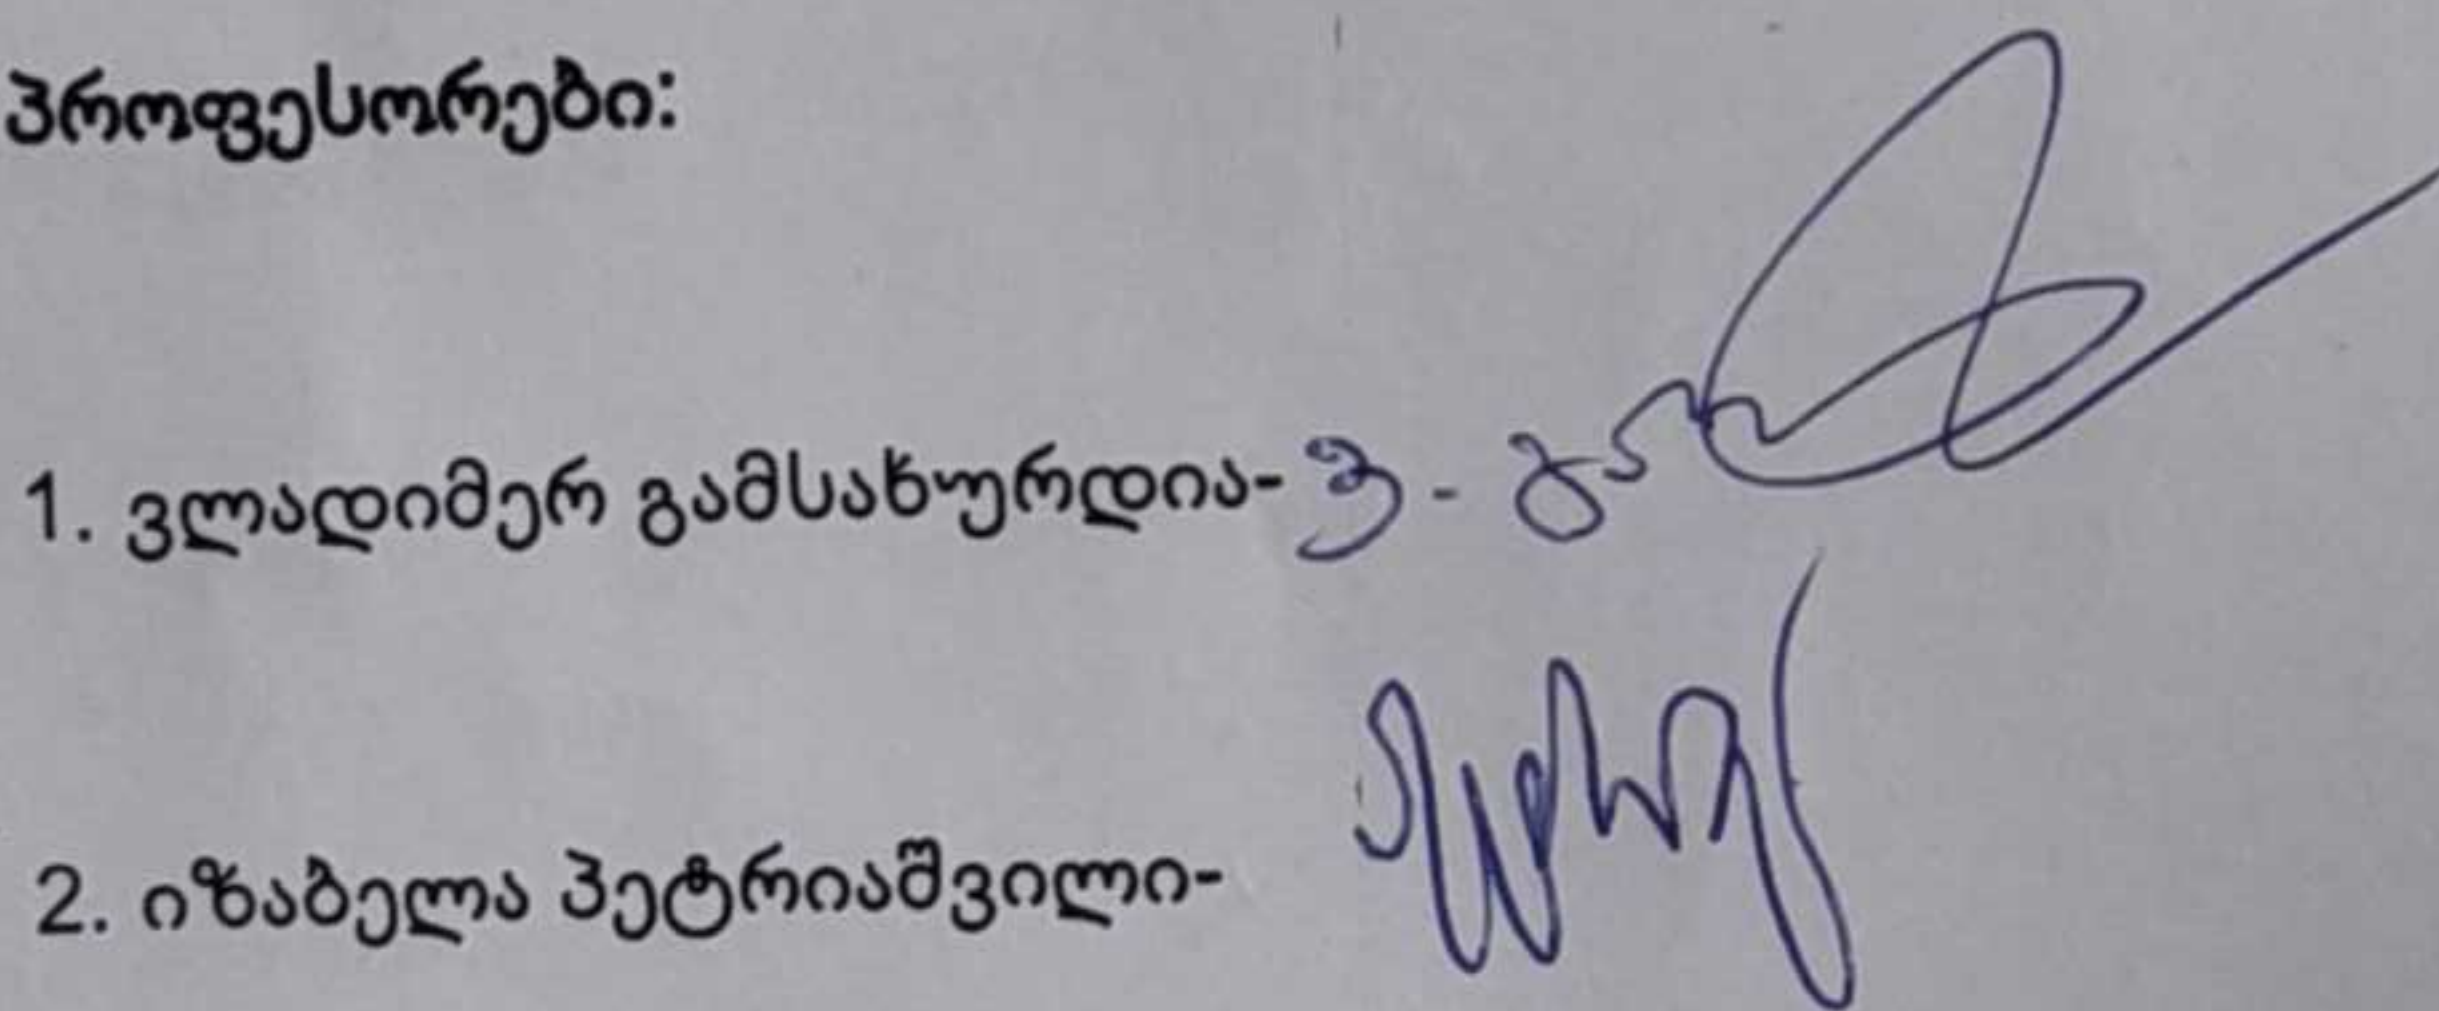 პროფესორები:
1. ვლადიმერ გამსახურდია- ვ - გამ
2. იზაბელა პეტრიაშვილი-